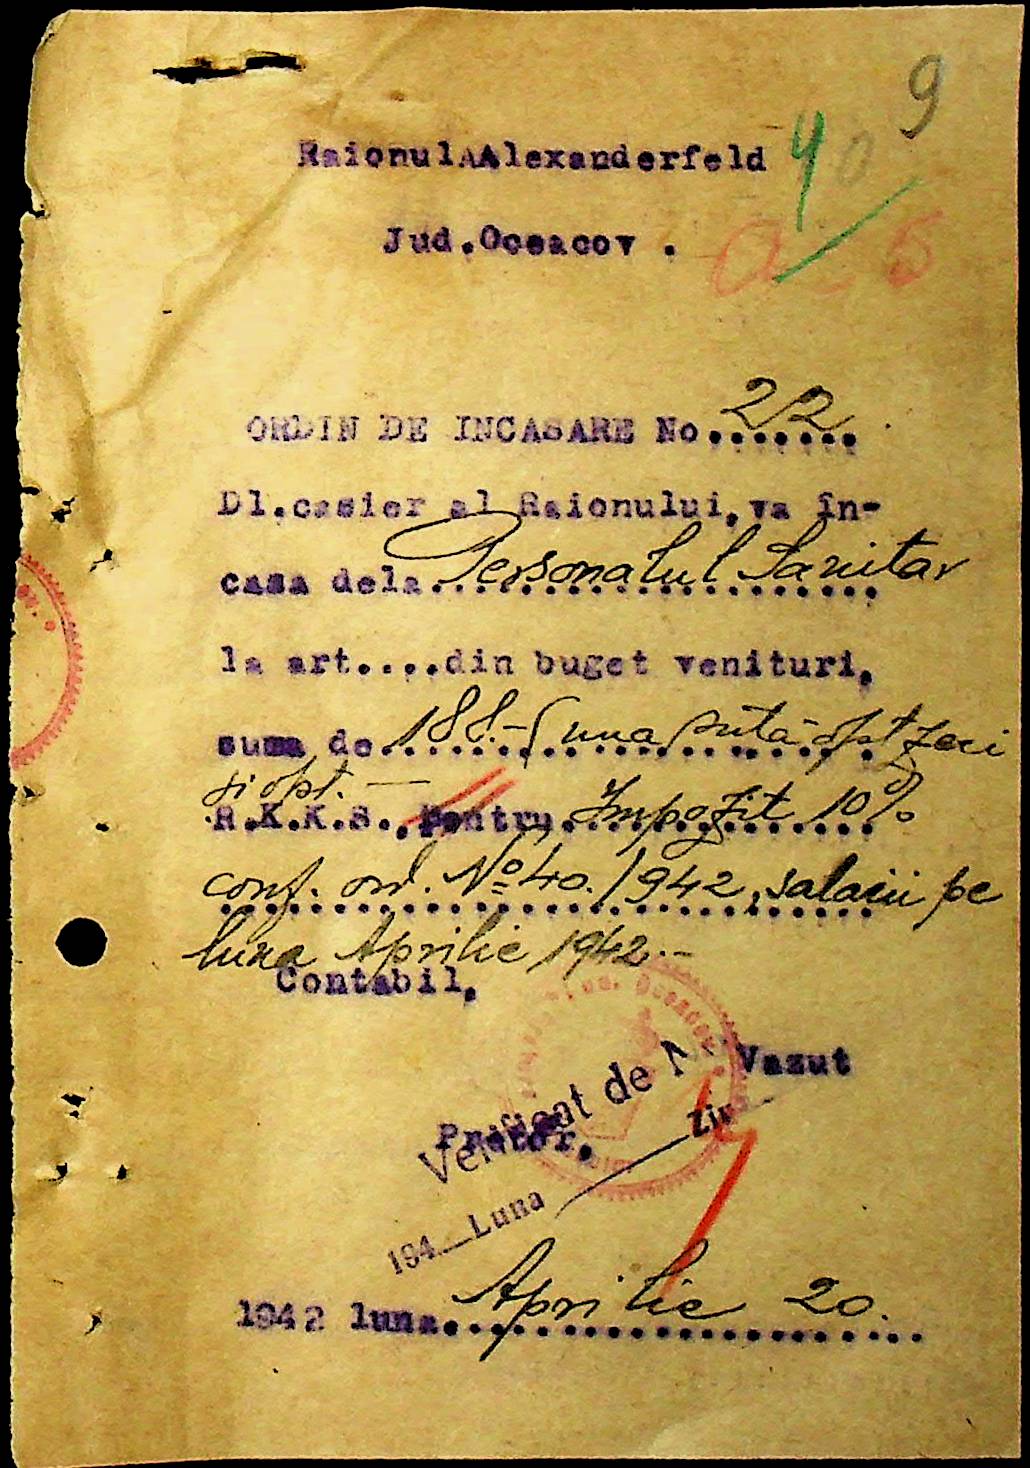 9
4
Raionul Alexanderfeld
Jud.Oceacov .
ORDIN DE INCASARE No. 22
Dl.casier al Raionului,va în-
casa dela Personalul Sanitar
la art....din buget venituri,
suma de 188.- (una sută opt zeci
și opt. —
R.K.K.S., pentru Impozit 10%
conf. ord. No 40./1942, salarii pe
luna Aprilie 1942.-
Contabil,
Vazut
Verificat de
Pretor,
Ziua
194 Luna
1942 luna Aprilie 20.